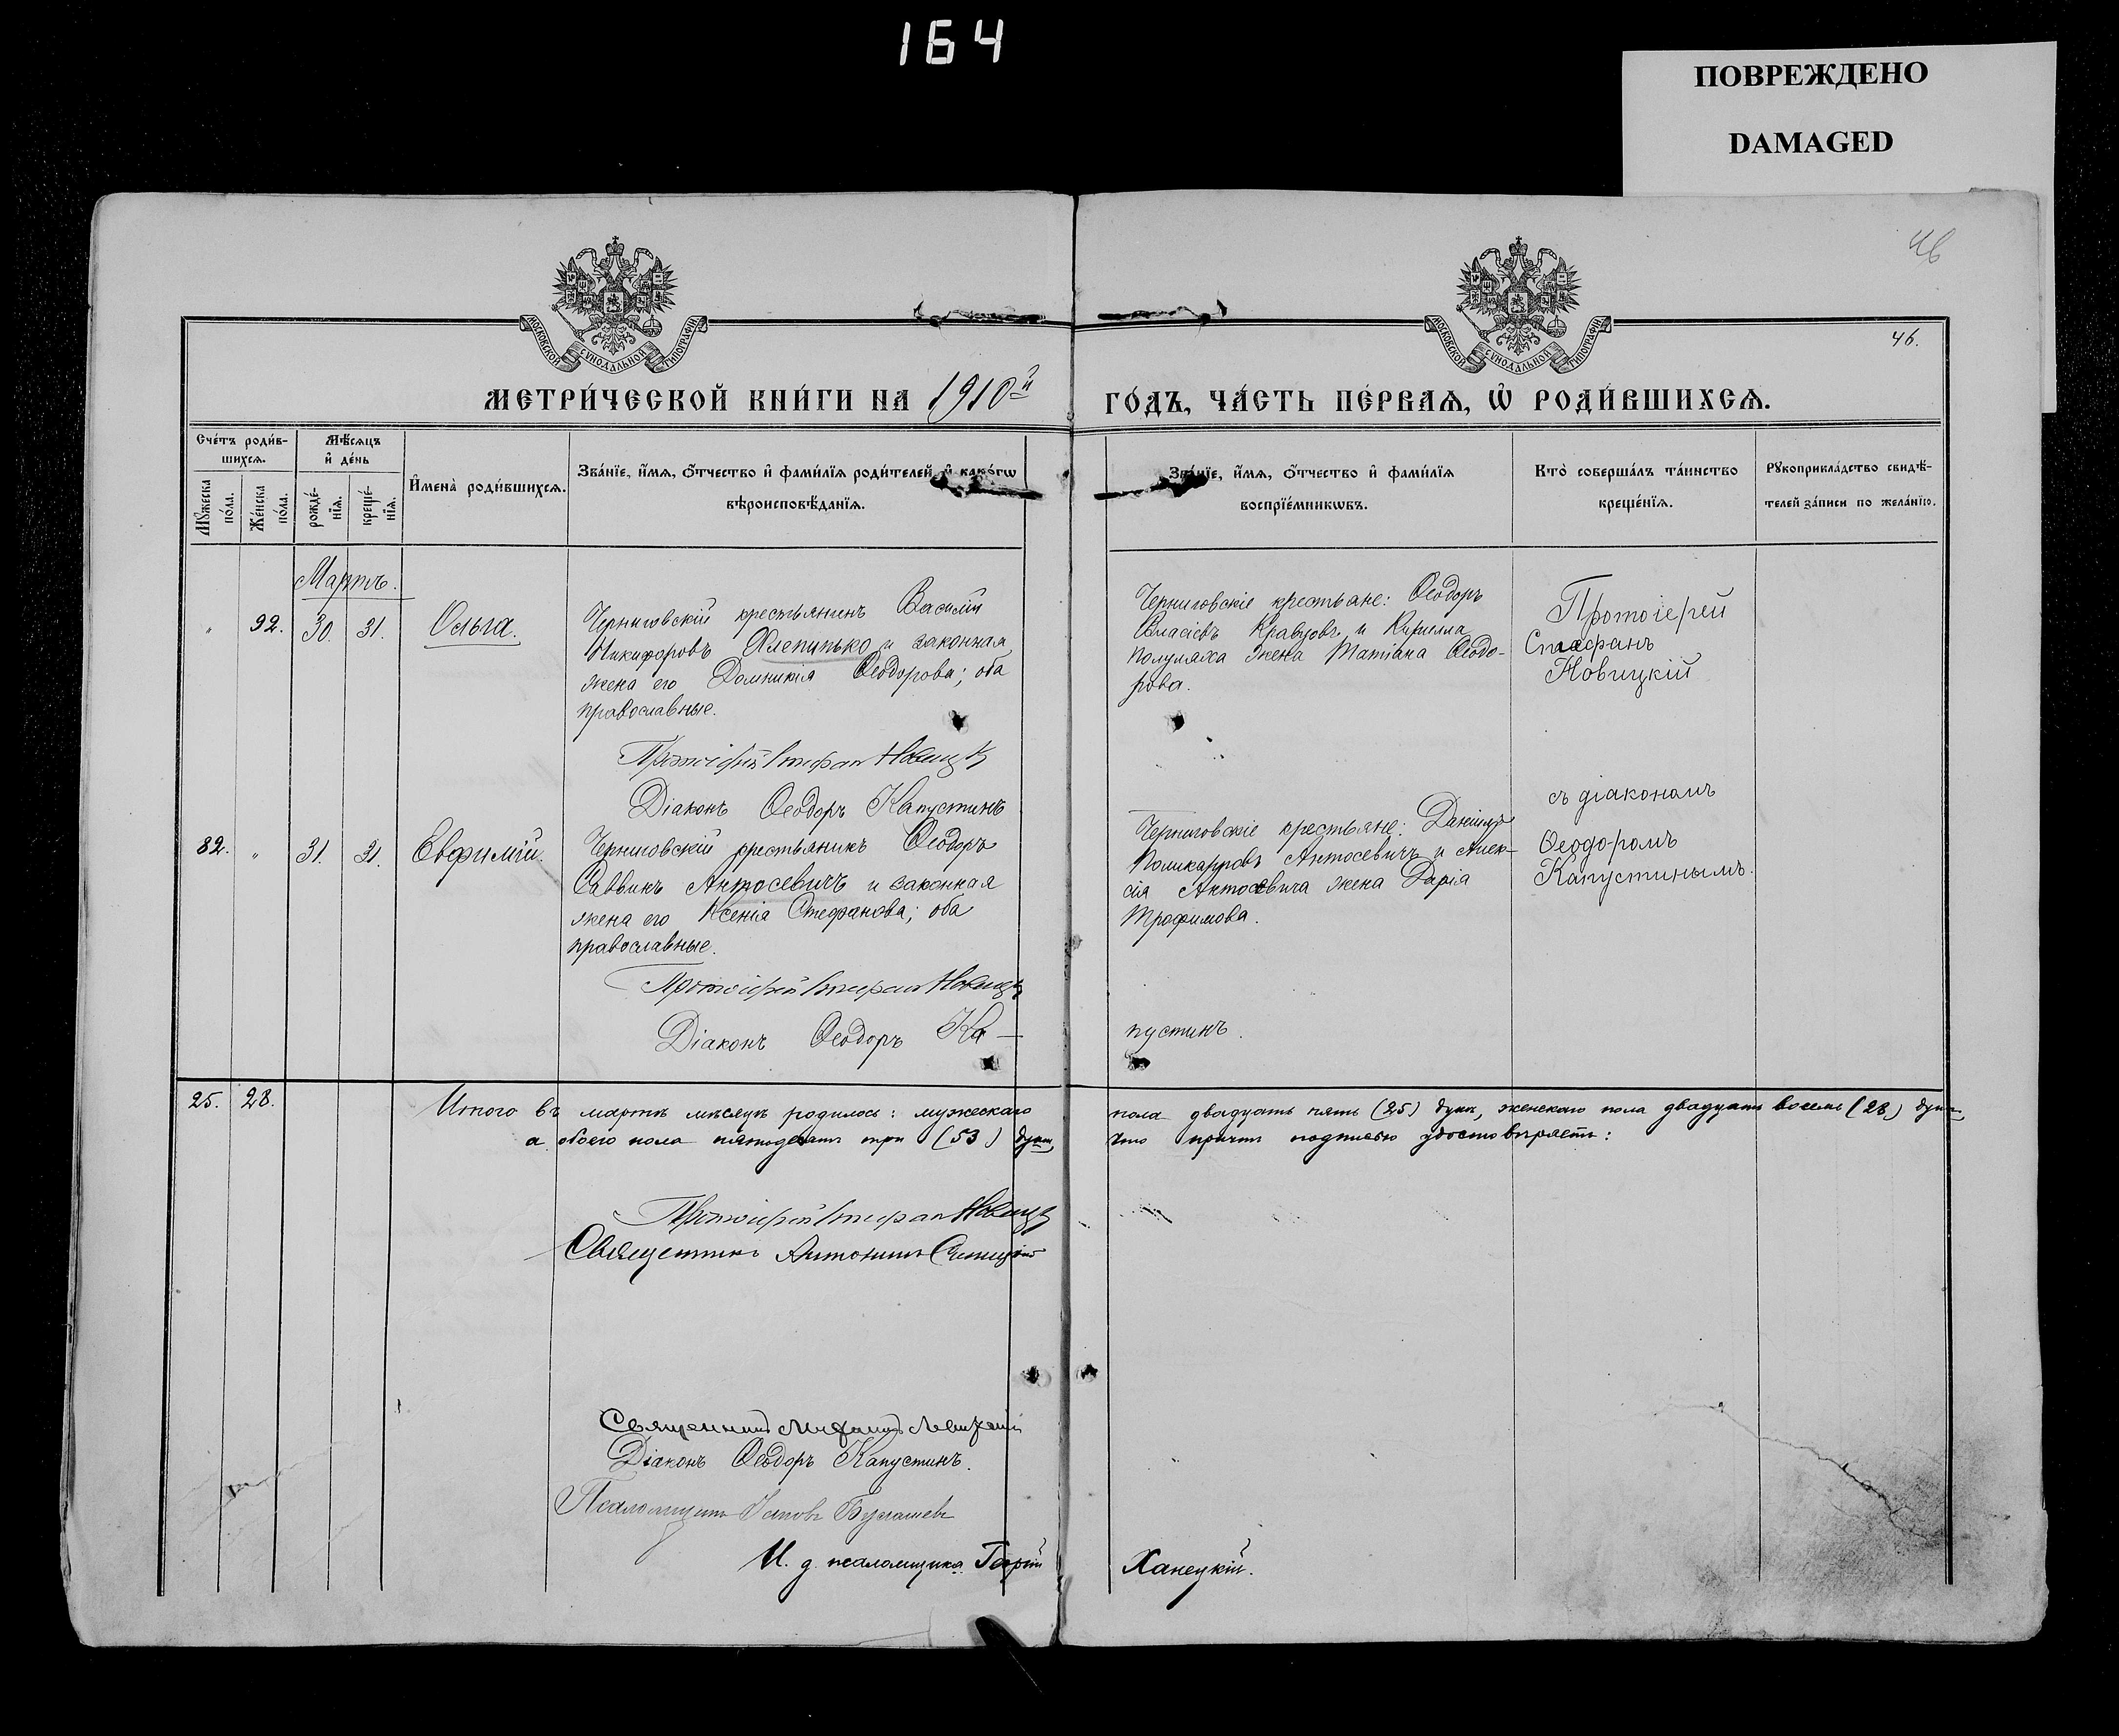 164
ПОВРЕЖДЕНО
DAMAGED
46
46.
МОСКОВСКОЙ СѴНОДАЛЬНОЙ ТИПОГРАФІИ
МОСКОВСКОЙ СѴНОДАЛЬНОЙ ТИПОГРАФІИ
МЕТРИ́ЧЕСКОЙ КНИ́ГИ НА 1910й
ГО́ДЪ, ЧА́СТЬ ПЕ́РВАѦ, Ѡ҆ РОДИ́ВШИХСѦ.
Сче́тъ роди́в-
шихсѧ.
Мꙋжеска по́ла.
Же́нска по́ла.
Мѣ́сѧцъ
и҆ де́нь
рожде́-
нїѧ.
креще́-
нїѧ.
И҆мена̀ роди́вшихсѧ.
Зва́нїе, и҆́мѧ, ѻ҆́тчество и҆ фами́лїѧ роди́телей, и҆ како́гѡ
вѣроисповѣ́данїѧ.
Зва́нїе, и҆́мѧ, ѻ҆́тчество и҆ фами́лїѧ
воспрїе́мникѡвъ.
Кто̀ соверша́лъ та́инство
креще́нїѧ.
Рꙋкоприкла́дство свидѣ́-
телей за́писи по жела́нїю.
Мартъ.
" 92. 30. 31. Ольга.
Черниговскій крестьянинъ Василій
Никифоровъ Хлепитько и законная
жена его Домникія Ѳеодорова; оба
православные.
Протоіерей Стефан Новицк
Діаконъ Ѳеодоръ Капустинъ
Черниговскіе крестьяне: Ѳеодоръ
Власіевъ Кравцовъ и Кирилла
Полуляха жена Татіана Ѳеодо-
рова.
Протоіерей
Стефанъ
Новицкій
съ діакономъ
Ѳеодоромъ
Капустинымъ.
82. " 31. 31. Евфимій.
Черниговскій крестьянинъ Ѳеодоръ
Саввинъ Антосевичъ и законная
жена его Ксенія Стефанова; оба
православные.
Протоіерей Стефан Новицк
Діаконъ Ѳеодоръ Ка-
Черниговскіе крестьяне: Даніилъ
Поликарповъ Антосевичъ и Алек-
сія Антосевича жена Дарія
Трофимова.
пустинъ.
25. 28.
Итого въ мартѣ мѣсяцѣ родилось: мужескаго пола двадцать пять (25) душъ, женскаго пола двадцать восемь (28) душъ,
а обоего пола пятьдесятъ три (53) душъ, что причтъ подписью удостовѣряетъ:
Протоіерей Стефан Новицк
Священникъ Антонинъ
Священникъ Михаилъ
Діаконъ Ѳеодоръ Капустинъ.
Псаломщикъ
И. д. псаломщика Георгій Ханецкій.